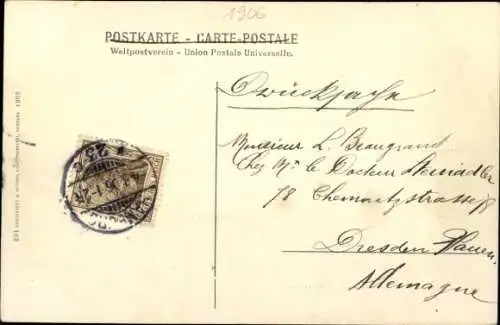 1906
POSTKARTE - CARTE-POSTALE
Weltpostverein - Union Postale Universelle.
Drucksache
Monsieur L. Beaugrand
Chez Mr le Docteur Steinadler
78 Chemnitzstrasse 78
Dresden Plauen.
Allemagne